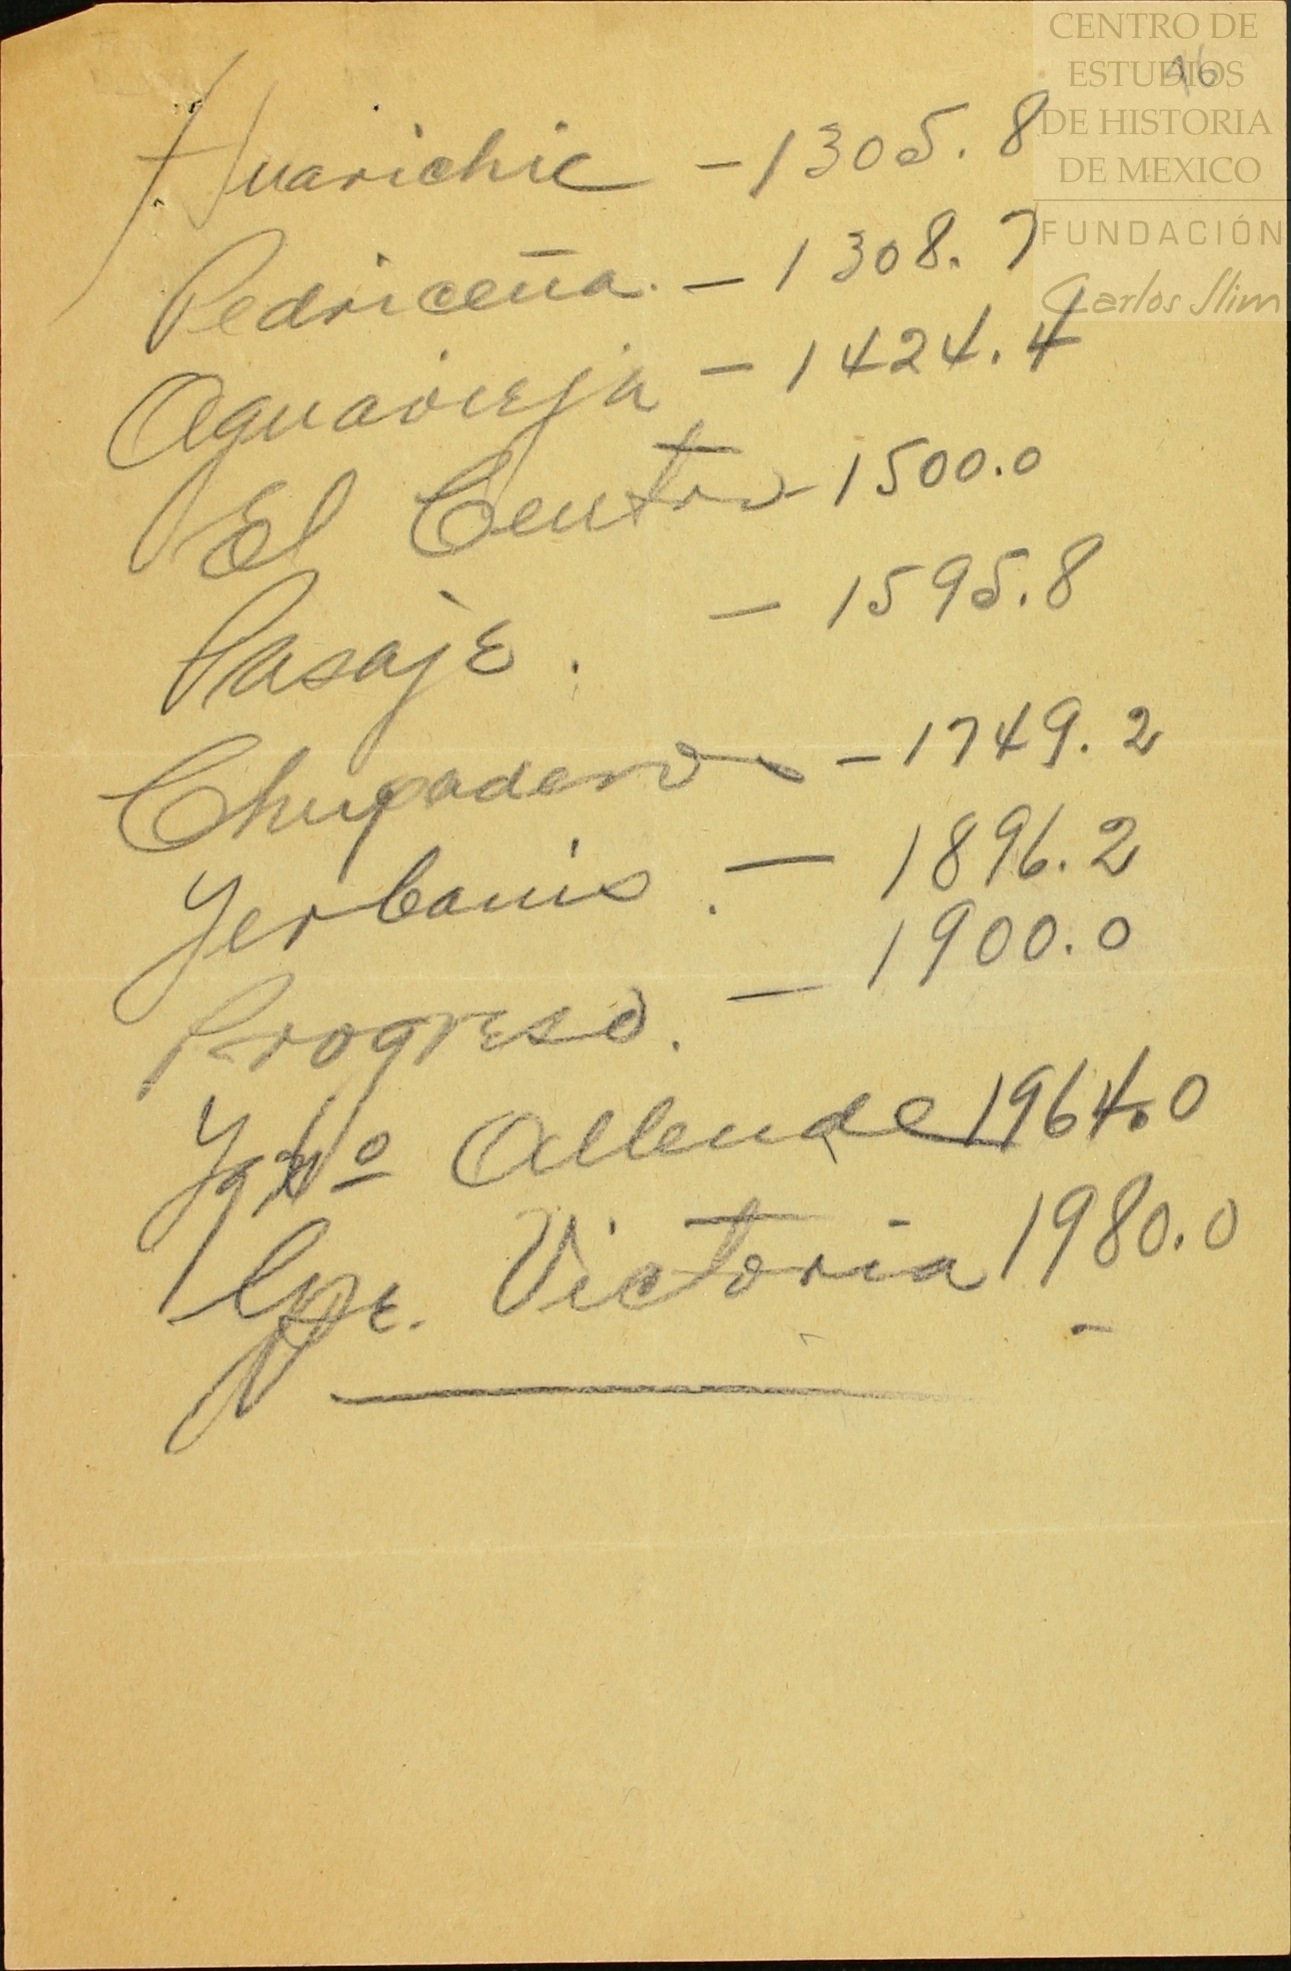 CENTRO DE
ESTUDIOS
DE HISTORIA
DE MEXICO
FUNDACIÓN
Carlos Slim
96
Huarichic - 1305.8
Pedriceña. - 1308.7
Aguavieja - 1424.4
El Centro - 1500.0
Pasaje. - 1595.8
Chupadero - 1749.2
Yerbanis. - 1896.2
Progreso. - 1900.0
Ygnº Allende 1964.0
Gpe. Victoria 1980.0